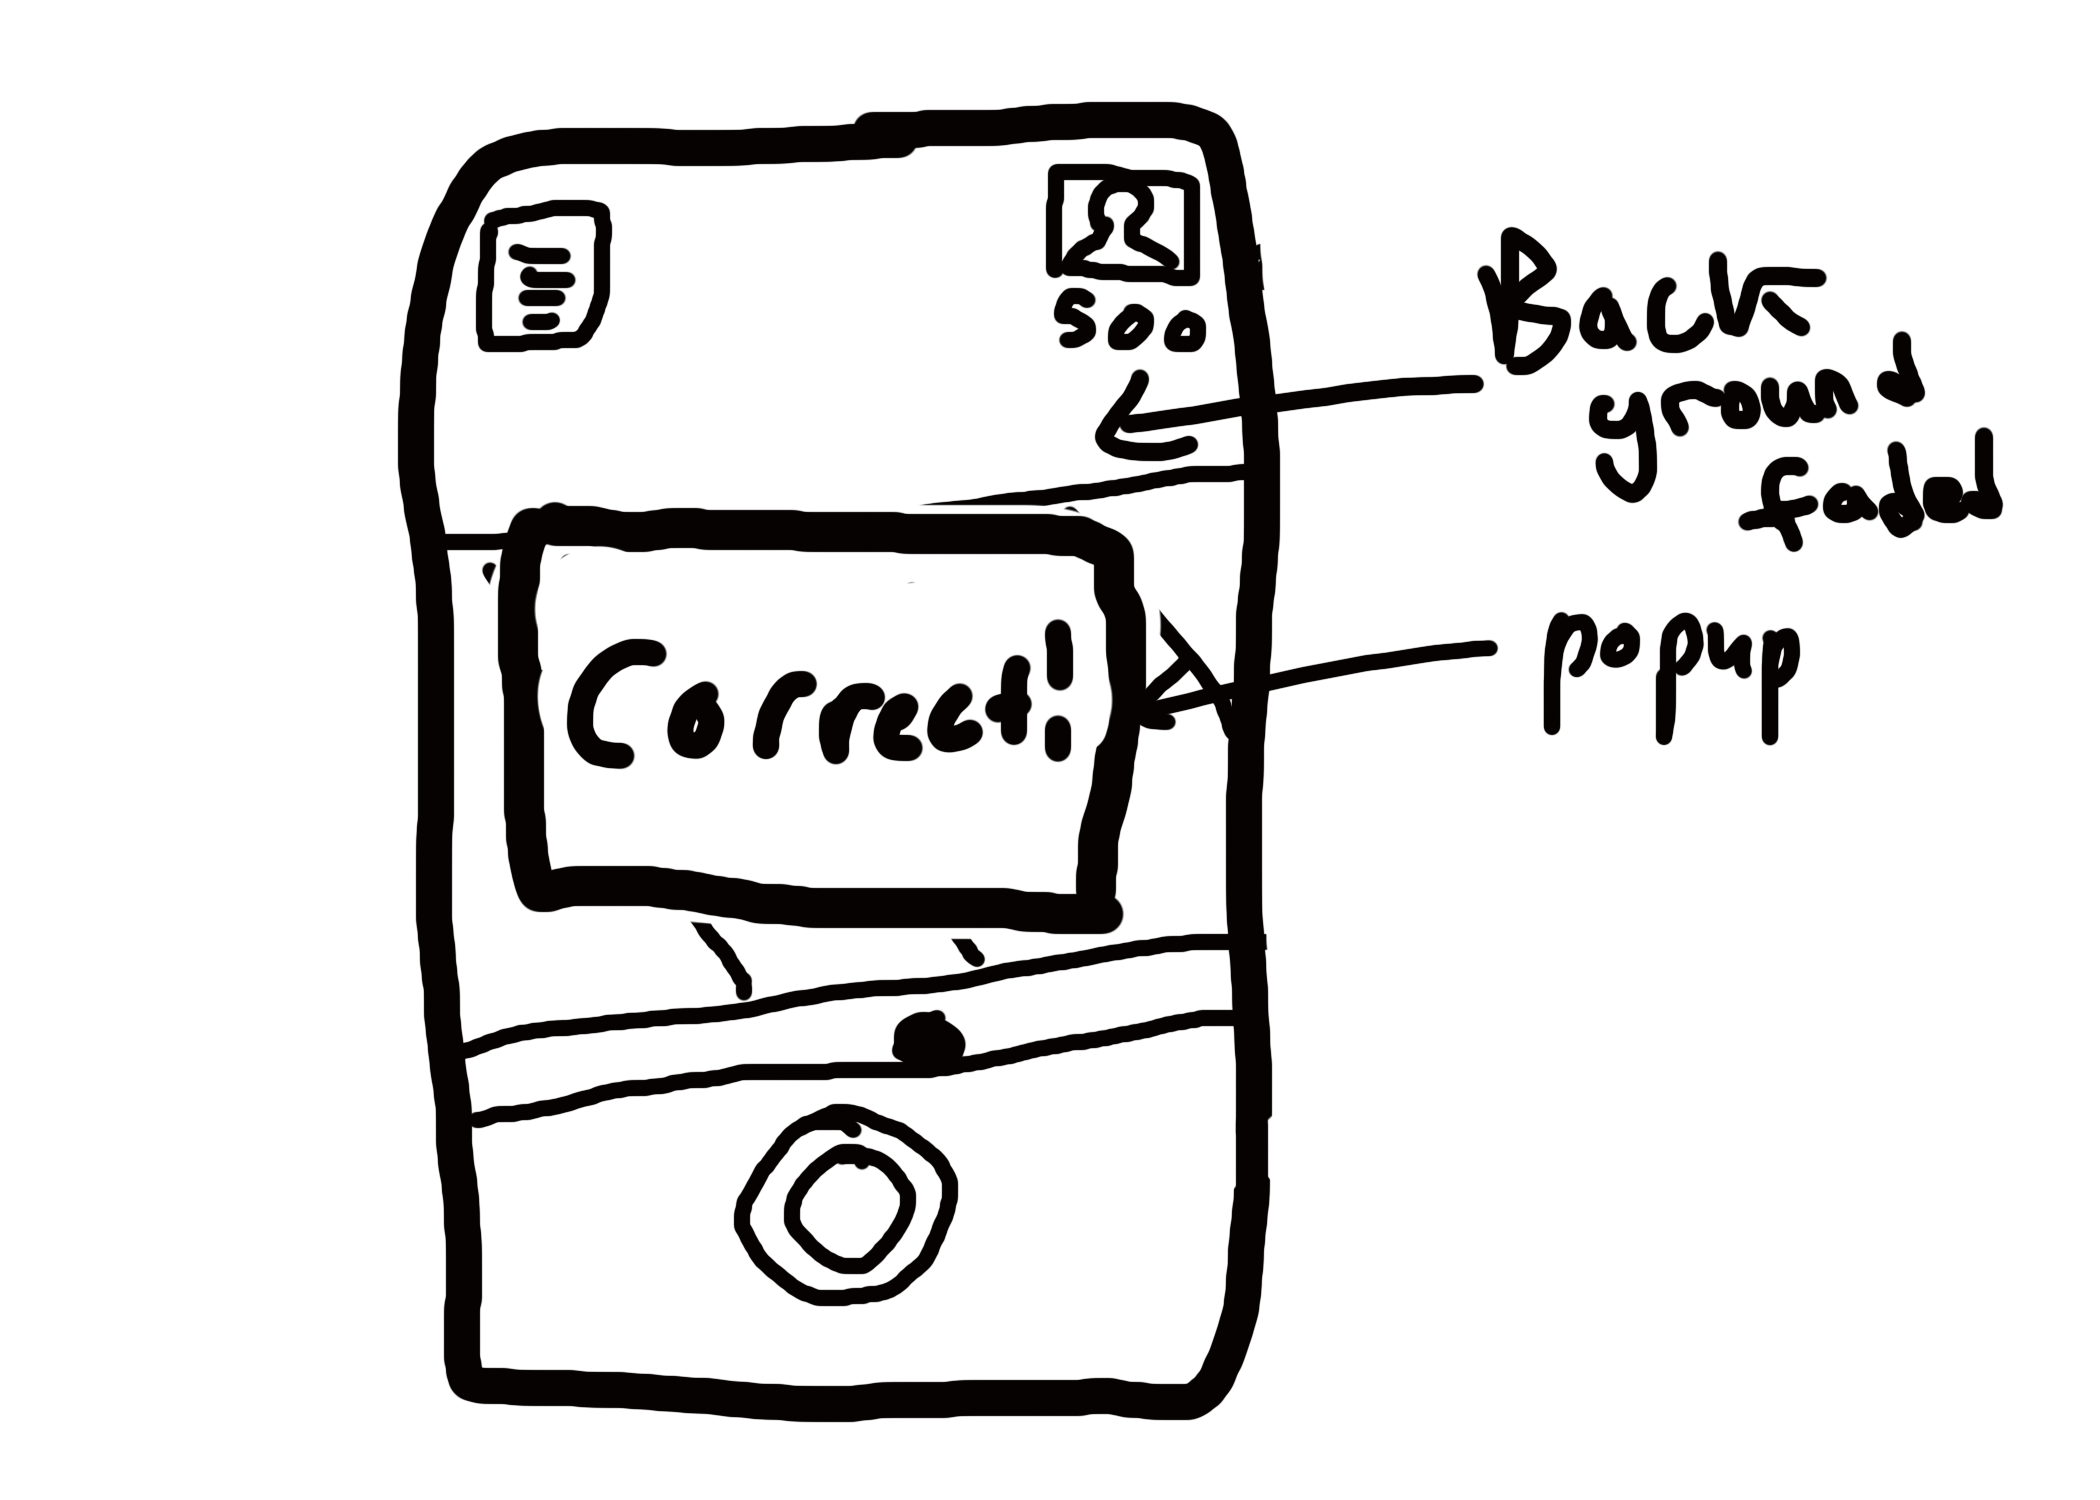 500
Back
ground
faded
Correct!
popup